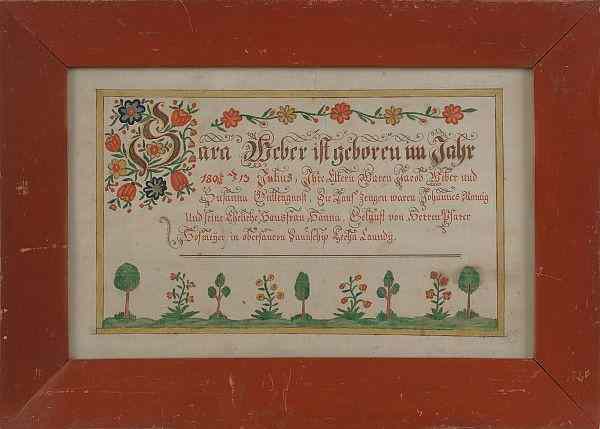 Sara Weber ist geboren im Jahr
13 Julius, Ihre Eltern Waren Jacob Weber und
Susanna Zu Tauf Zeugen waren Johannes König
Und seine Eheliche Hausfrau Hanna, Getauft von Herren Pfarer
in obersancon Taunschip Lecha Caundy.